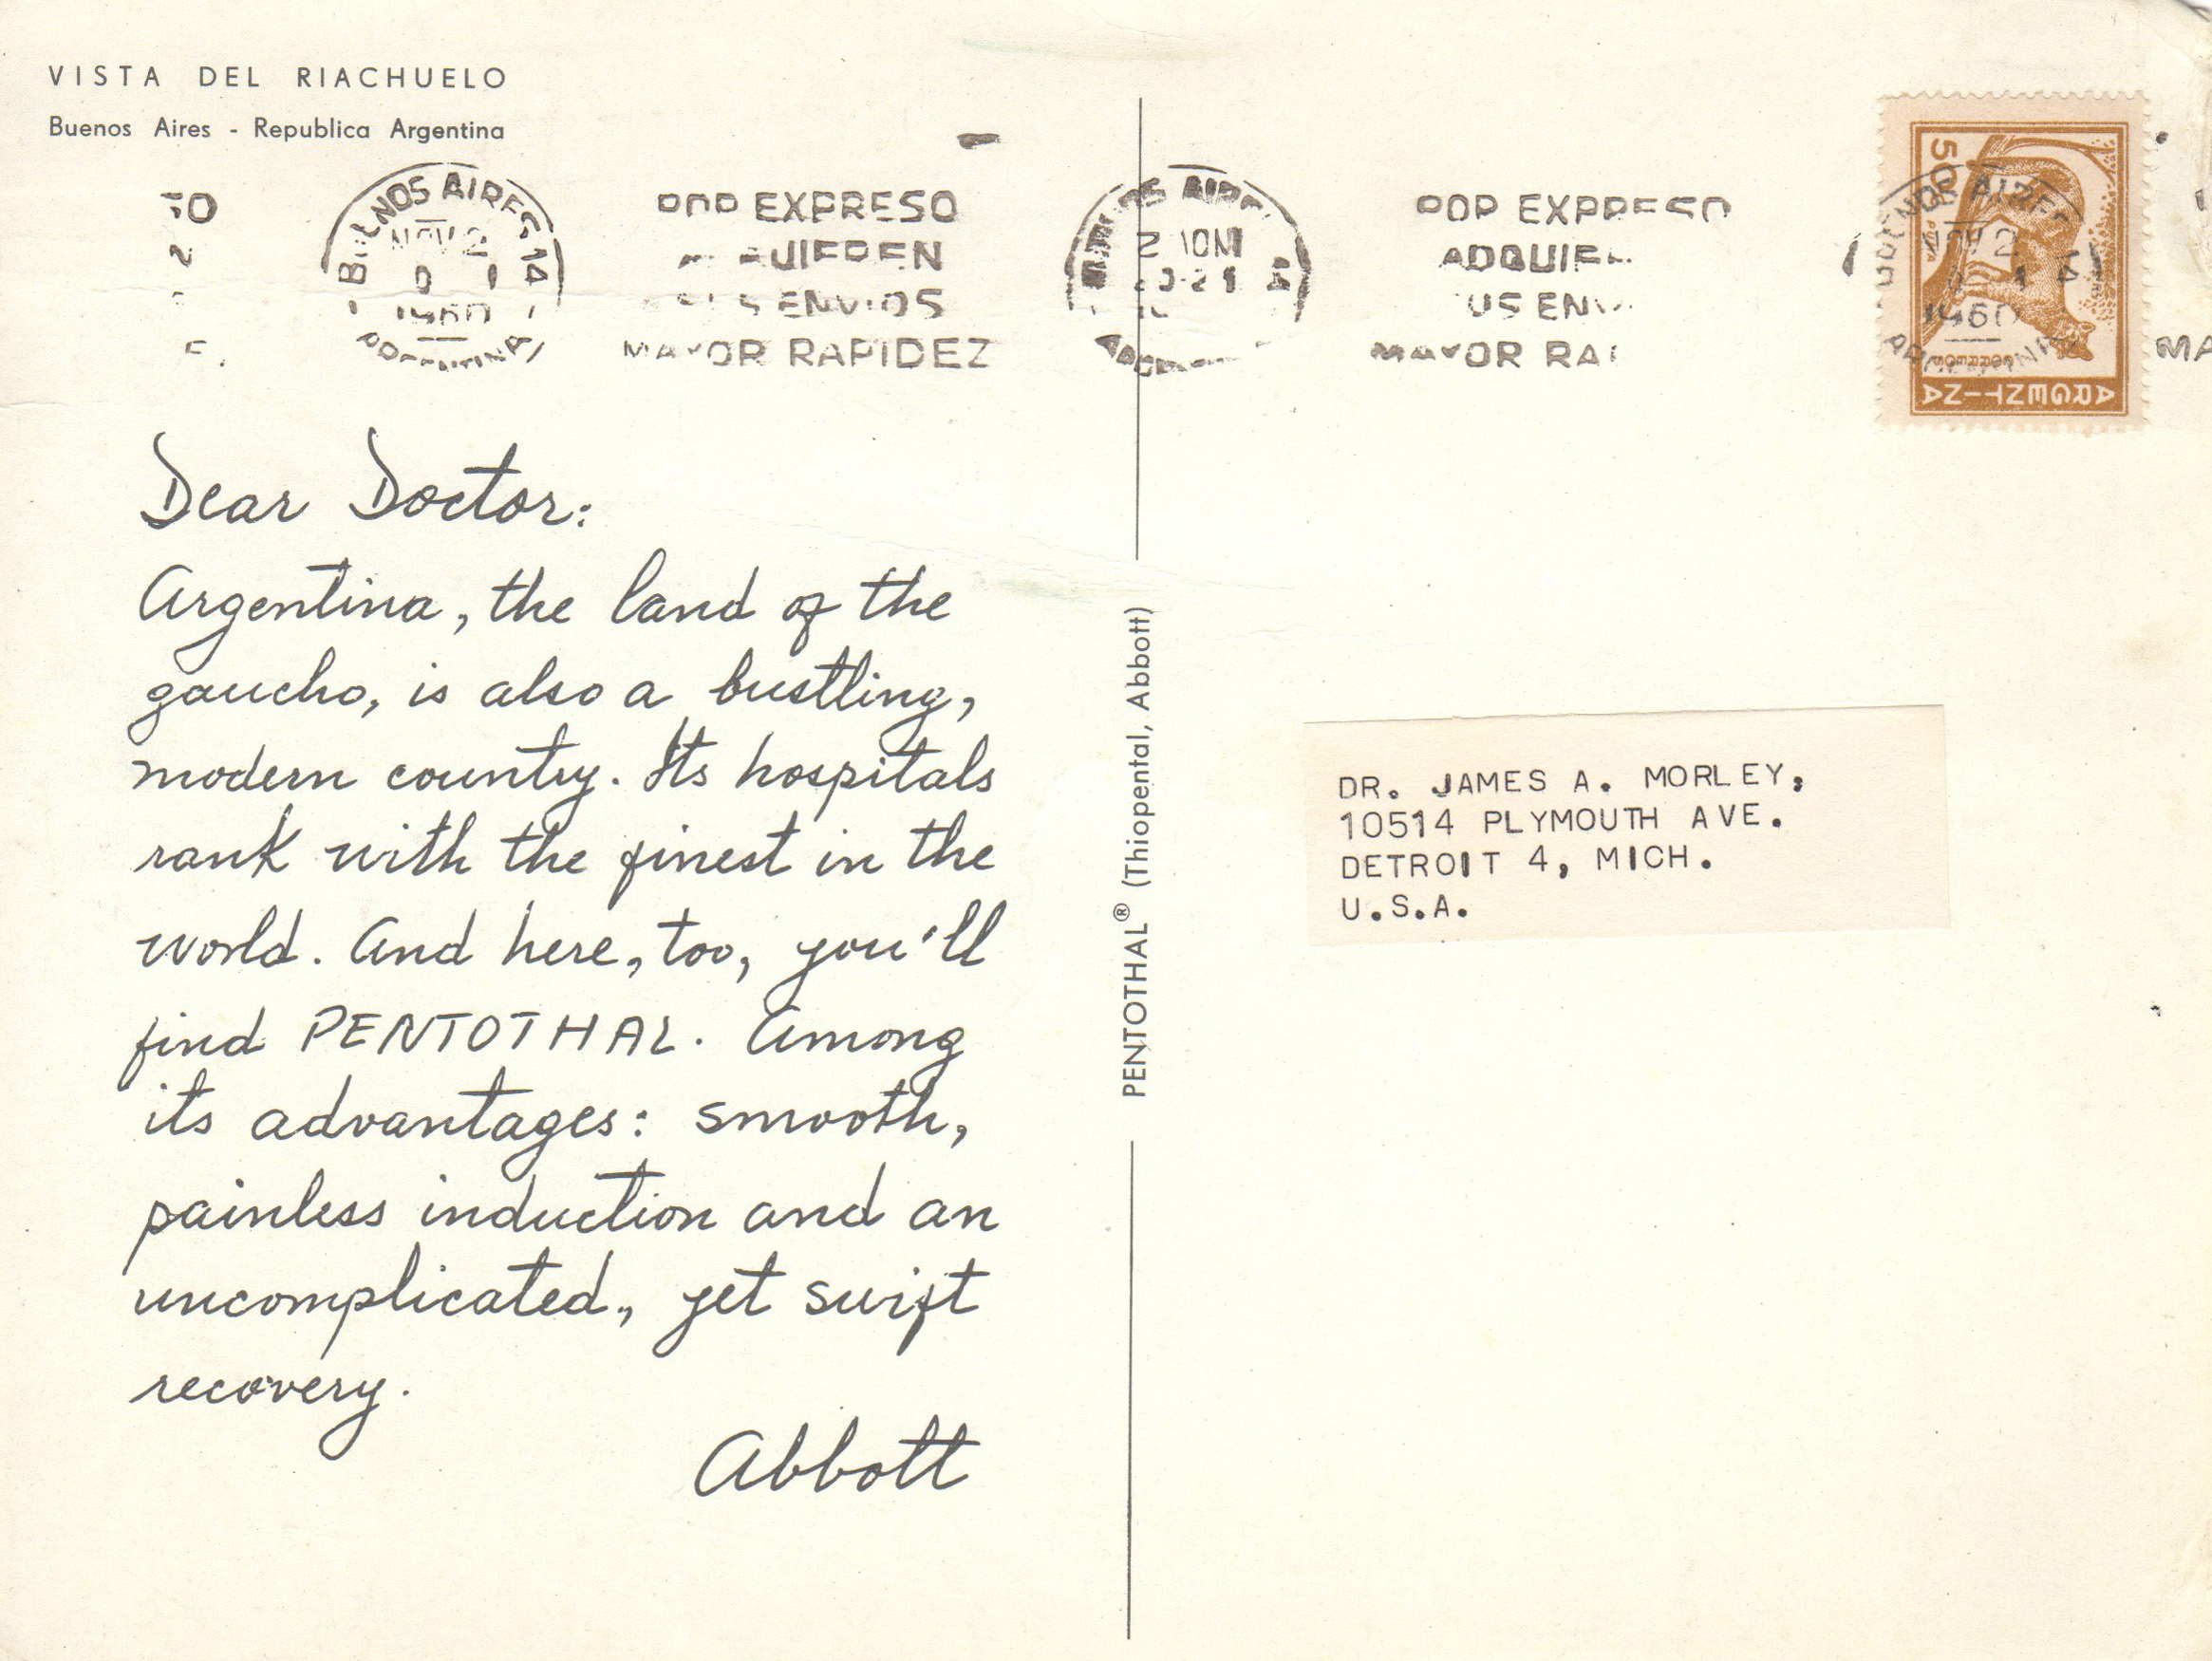 VISTA DEL RIACHUELO
Buenos Aires - Republica Argentina
BUENOS AIRES 14
NOV 2
1960
ARGENTINA
POR EXPRESO
ADQUIEREN
SUS ENVIOS
MAYOR RAPIDEZ
BUENOS AIRES
2 NOV
20-21
POR EXPRESO
ADQUIE
US ENV
MAYOR RA
BUENOS AIRES 14
NOV 2
1960
ARGENTINA
MA
50
CORREOS
ARGENTINA
Dear Doctor:
Argentina, the land of the
gaucho, is also a bustling,
modern country. Its hospitals
rank with the finest in the
world. And here, too, you'll
find PENTOTHAL. Among
its advantages: smooth,
painless induction and an
uncomplicated, yet swift
recovery.
Abbott
PENTOTHAL® (Thiopental, Abbott)
DR. JAMES A. MORLEY,
10514 PLYMOUTH AVE.
DETROIT 4, MICH.
U.S.A.